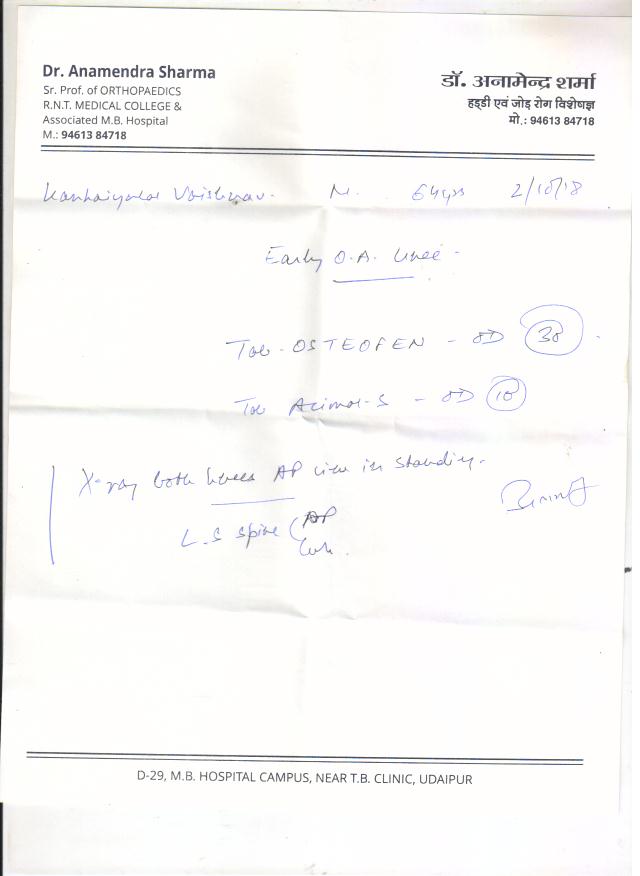 Dr. Anamendra Sharma
Sr. Prof. of ORTHOPAEDICS
R.N.T. MEDICAL COLLEGE &
Associated M.B. Hospital
M.: 94613 84718
डॉ. अनामेन्द्र शर्मा
हड्डी एवं जोड़ रोग विशेषज्ञ
मो.: 94613 84718
Kanhaiyalal Vaishnav. M. 64yrs 2/10/18
Early O.A. knee -
Tab - OSTEOFEN - OD 30
Tab - S - OD 10
X-ray both knees AP view in standing.
L.S spine ( AP
D-29, M.B. HOSPITAL CAMPUS, NEAR T.B. CLINIC, UDAIPUR